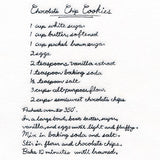 Chocolate Chip Cookies
1 cup white sugar
1 cup butter, softened
1 cup packed brown sugar
2 eggs
2 teaspoons vanilla extract
1 teaspoon baking soda
½ teaspoon salt
3 cups all-purpose flour
2 cups semisweet chocolate chips
Preheat oven to 350°.
In a large bowl, beat butter, sugar,
vanilla, and eggs until light and fluffy.
Mix in baking soda and salt.
Stir in flour and chocolate chips.
Bake 10 minutes until